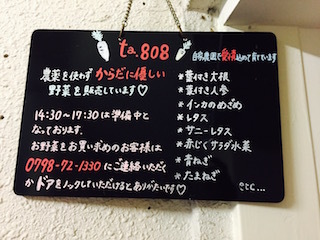 ta.808
自家農園で愛情込めて育てています
農薬を使わず からだに優しい
野菜を販売しています♡
14:30~17:30は準備中と
なっております。
お野菜をお買い求めのお客様は
0798-72-1330にご連絡いただく
か ドアをノックしていただけるとありがたいです♡
*葉付き大根
*葉付き人参
*インカのめざめ
*レタス
*サニーレタス
*赤じくサラダ水菜
*青ねぎ
*たまねぎ
etc...